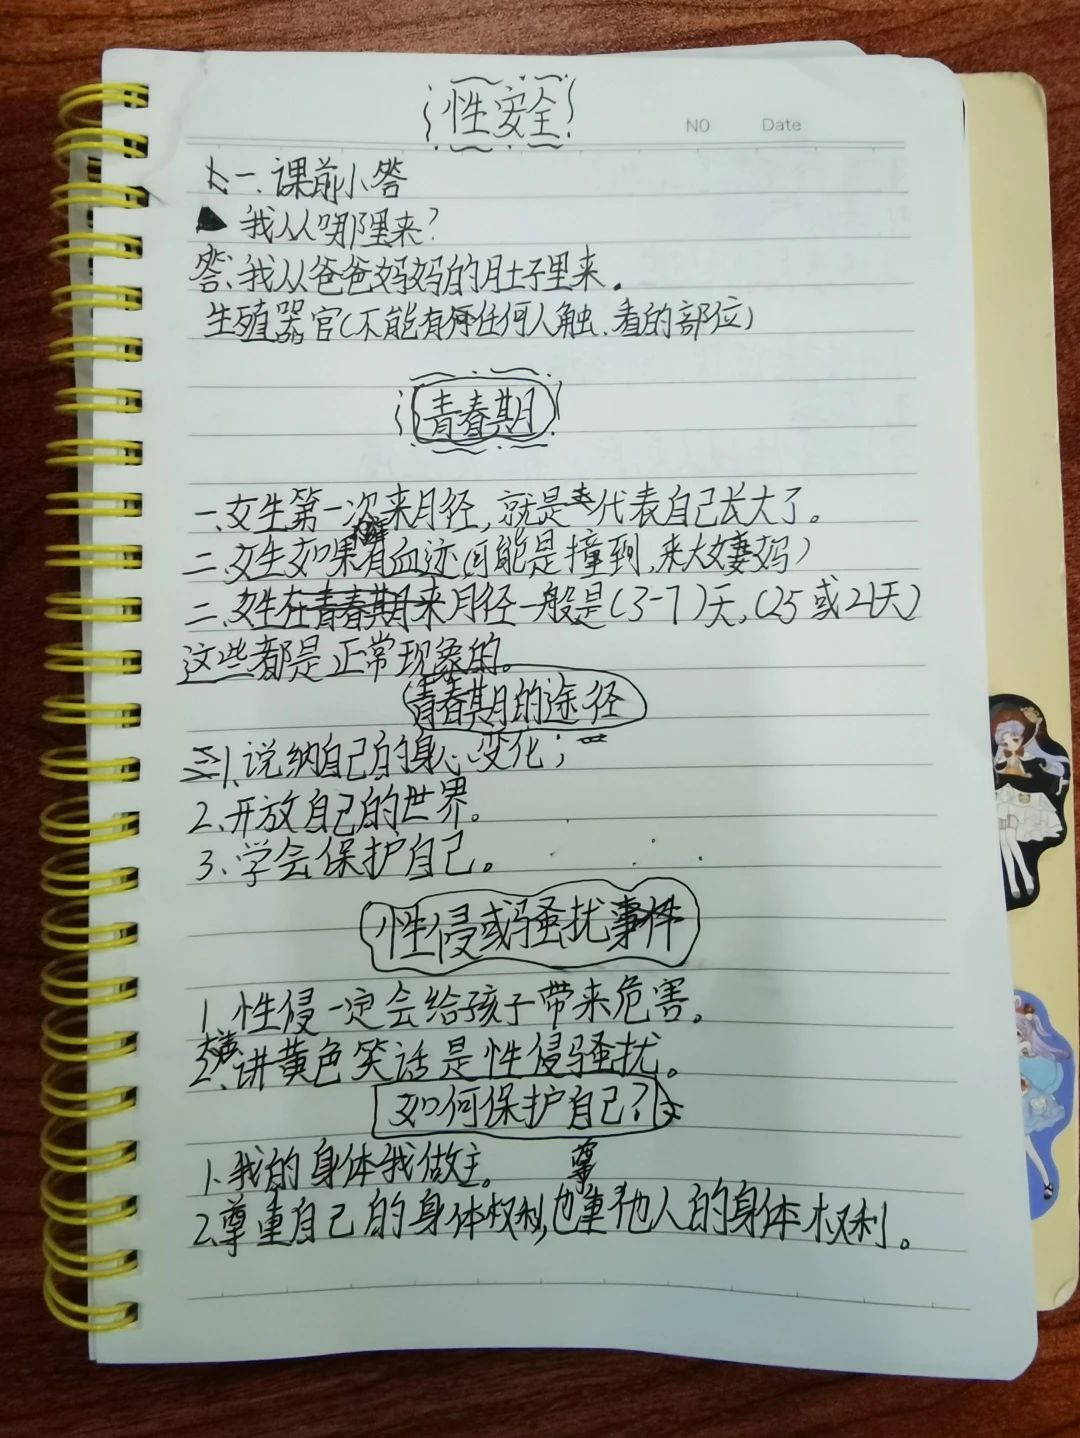 性安全
NO Date
一.课前小答
我从哪里来?
答:我从爸爸妈妈的肚子里来.
生殖器官(不能有任何人触、看的部位)
青春期
一.女生第一次来月径,就是代表自己长大了。
二.女生如果有血迹(可能是撞到,来大姨妈)
二.女生在青春期来月径一般是(3-7)天,(25或21天)
这些都是正常现象的。
青春期的途径
1.说纳自己的身心变化;
2.开放自己的世界。
3.学会保护自己。
性侵或骚扰事件
1.性侵一定会给孩子带来危害。
2.讲黄色笑话是性侵骚扰。
如何保护自己?
1.我的身体我做主。
2.尊重自己的身体权利,也尊重他人的身体权利。